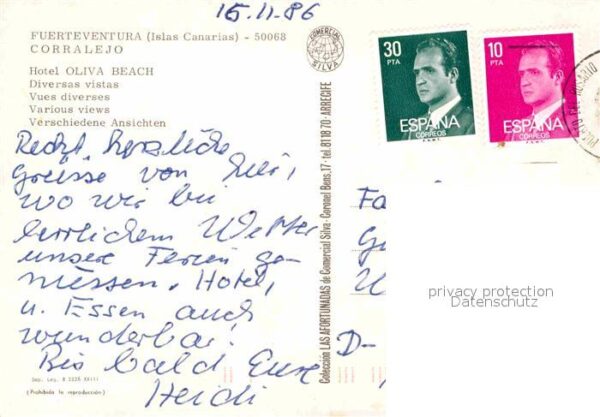 15.11.86
FUERTEVENTURA (Islas Canarias) - 50068
CORRALEJO
Hotel OLIVA BEACH
Diversas vistas
Vues diverses
Various views
Verschiedene Ansichten
Recht herzliche
Grüsse von hier,
wo wir bei
herrlichem Wetter
unsere Ferien ge-
niessen. Hotel,
u. Essen auch
wunderbar.
Bis bald Eure
Heidi
Dep. Leg. B
(Prohibida la reproducción)
COMERCIAL
SILVA
Colección LAS AFORTUNADAS de Comercial Silva - Coronel Bens, 17 - tel. 81 18 70 - ARRECIFE
30
PTA
ESPAÑA
CORREOS
10
PTA
ESPAÑA
CORREOS
Fa
G
D-
privacy protection
Datenschutz